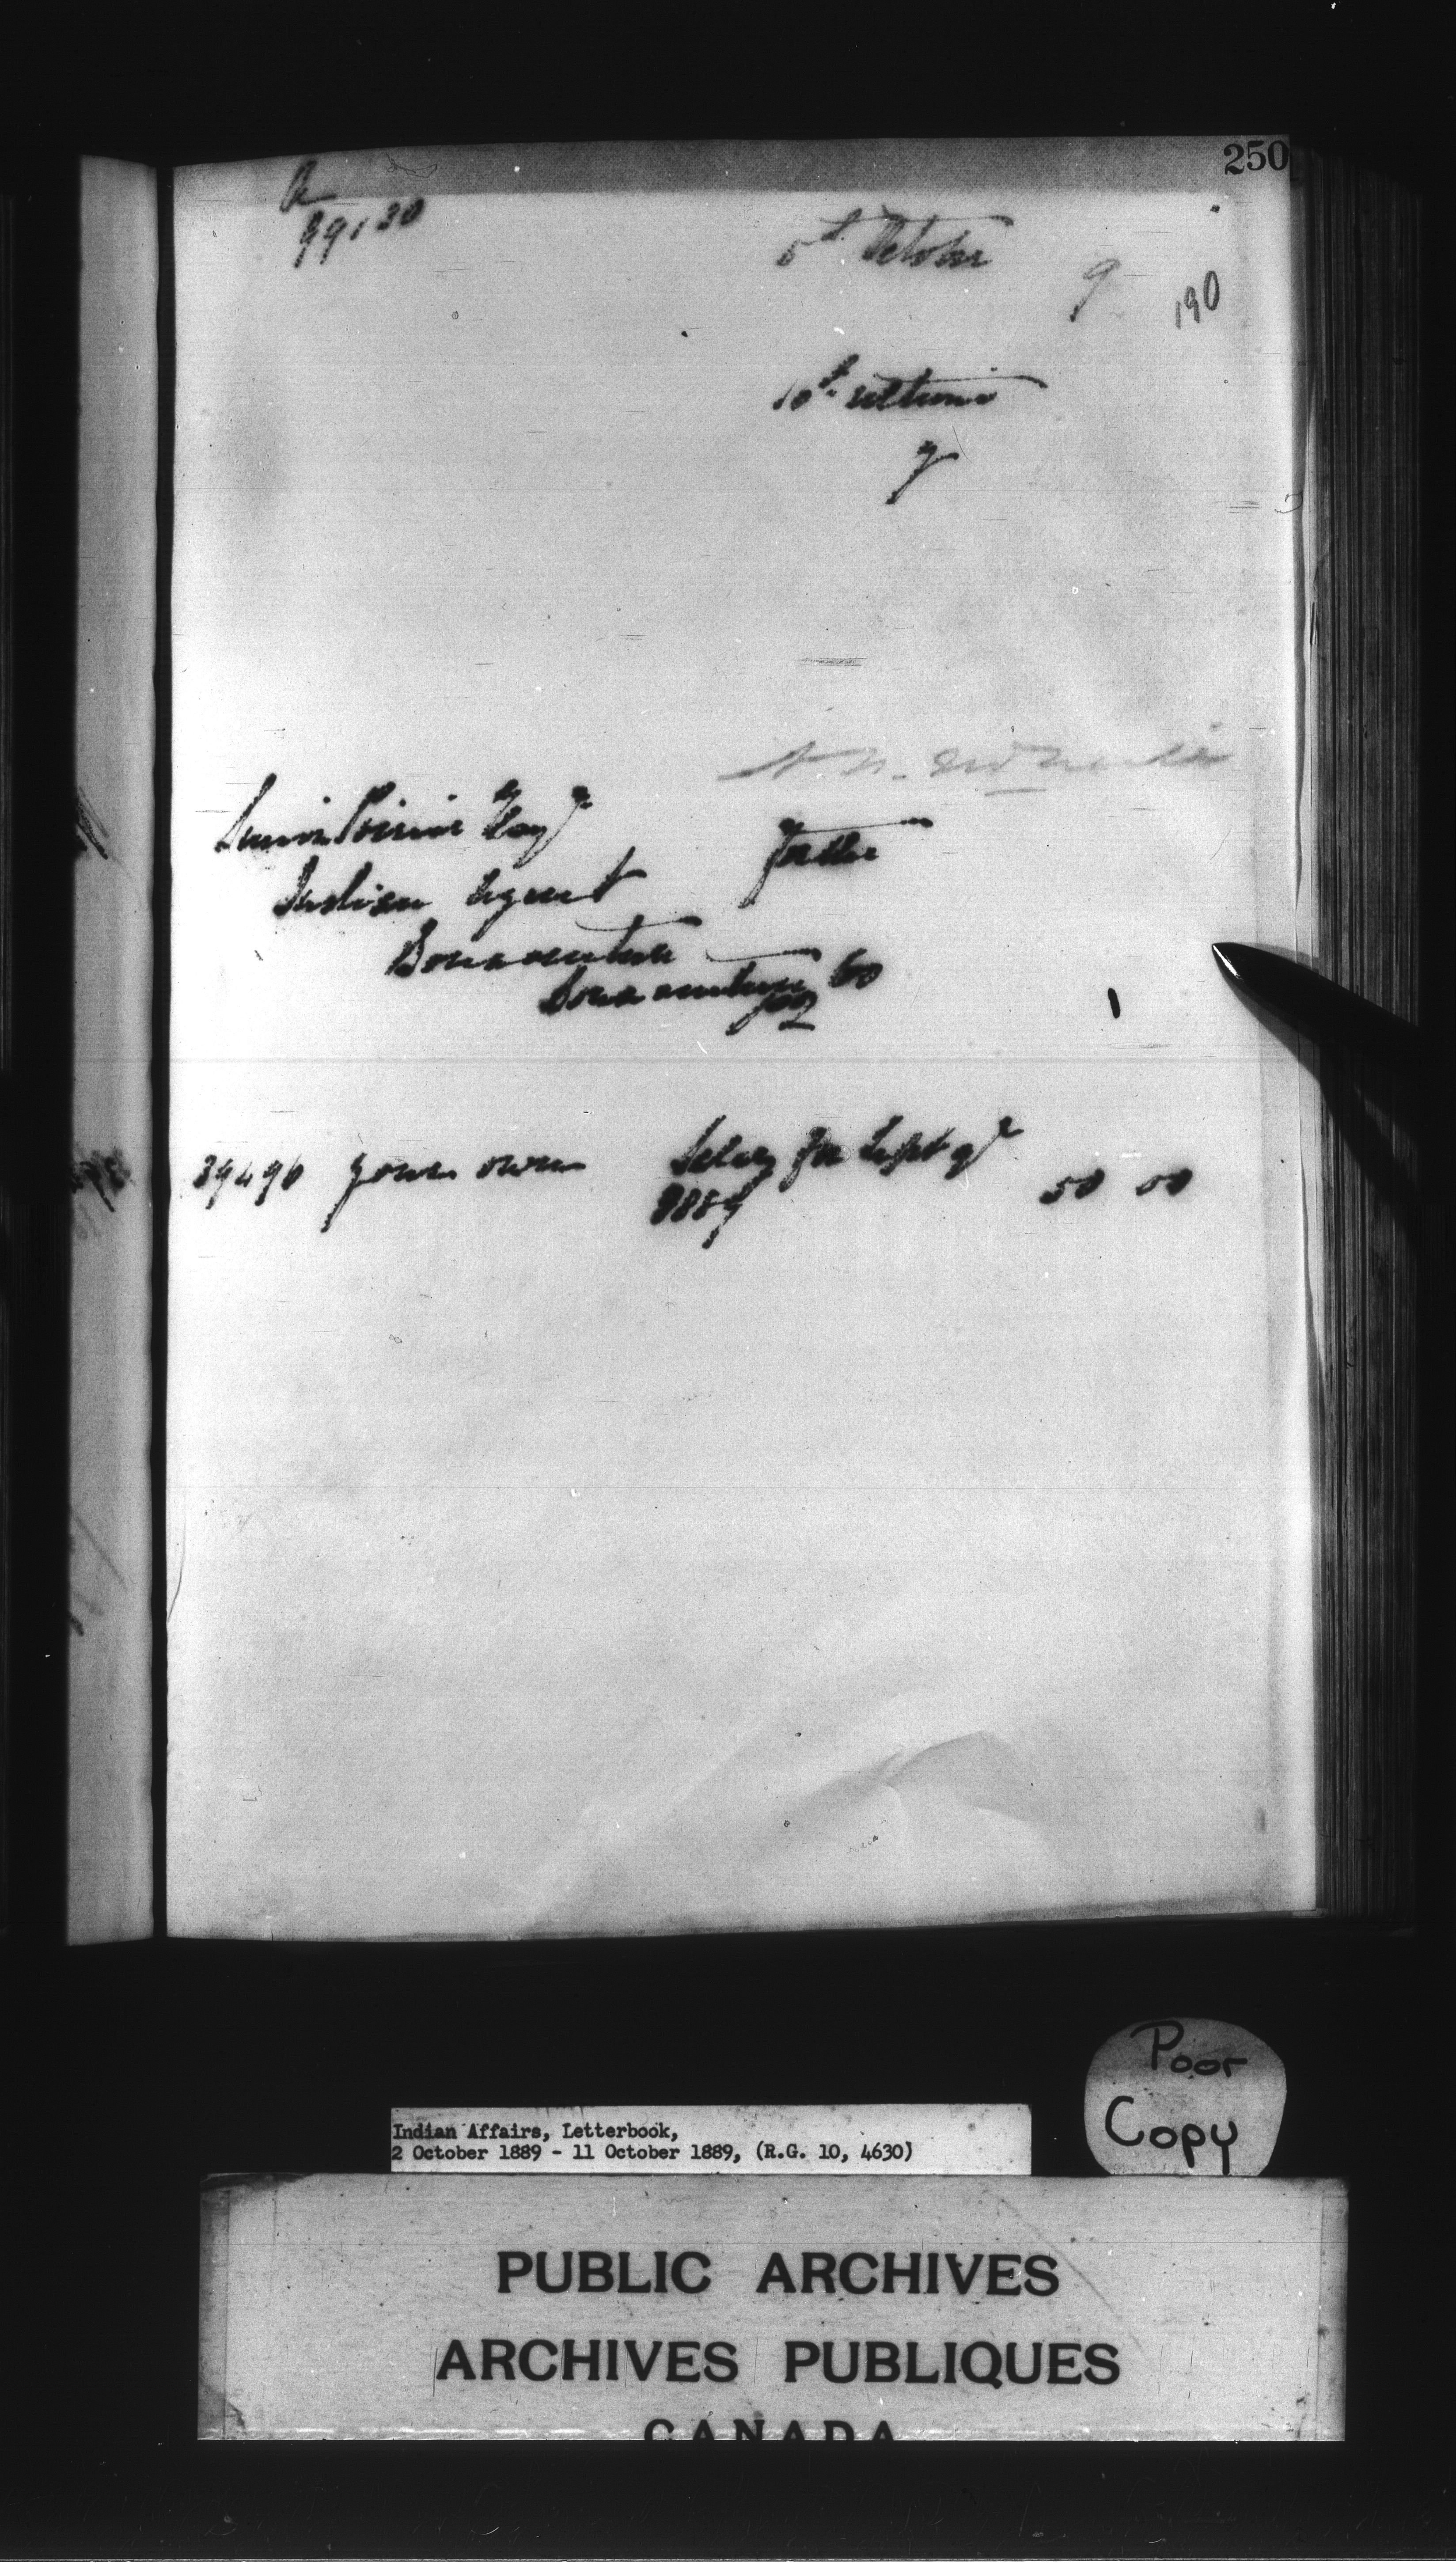 250
5th October 9
190
10th ultimo
Esqr
Indian Agent
Bonaventure
Bonaventure Co
PQ
39490 your own Salary for Sept qr 50 00
1889
Poor
Copy
Indian Affairs, Letterbook,
2 October 1889 - 11 October 1889, (R.G. 10, 4630)
PUBLIC ARCHIVES
ARCHIVES PUBLIQUES
CANADA